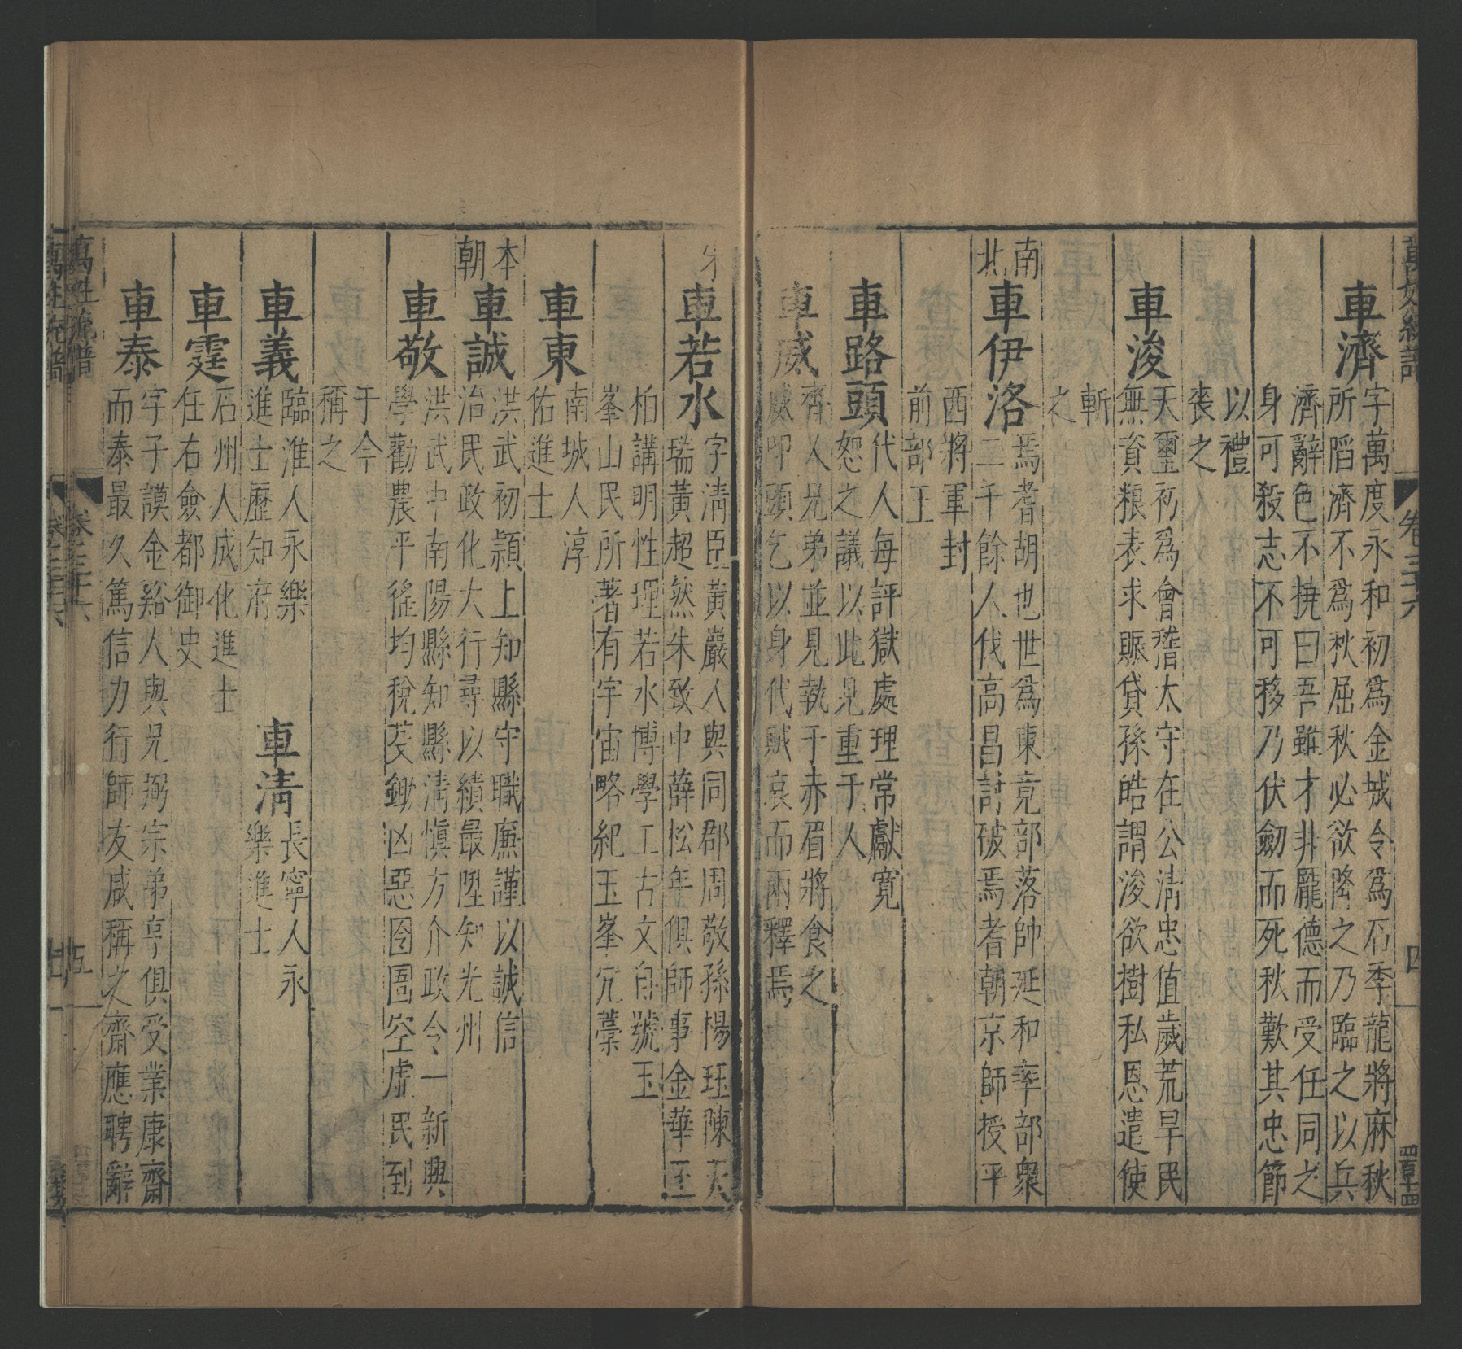 車濟
字萬度永和初爲金城令爲石季龍將麻秋
所䧟濟不爲秋屈秋必欲降之乃臨之以兵
濟辭色不撓曰吾雖才非龐德而受任同之
身可殺志不可移乃伏劒而死秋歎其忠節
以禮
䘮之
車浚
天璽初爲會稽太守在公清忠值歲荒旱民
無資粮表求賑貸孫皓謂浚欲樹私恩遣使
斬
之
南
北
車伊洛
焉耆胡也世爲東境部落帥延和率部衆
二千餘人伐高昌討破焉耆朝京師授平
西將軍封
前部王
車路頭
代人每評獄處理常獻寬
恕之議以此見重于人
車威
齊人兄弟並見執于赤眉將食之
威叩頭乞以身代賊哀而兩釋焉
車若水
字清臣黃巖人與同郡周敬孫楊珏陳天
瑞黃超然朱致中薛松年俱師事金華王
柏講明性理若水博學工古文自號玉
峯山民所著有宇宙略紀玉峯冗藁
車東
南城人淳
佑進士
本
朝
車誠
洪武初潁上知縣守職廉謹以誠信
治民政化大行尋以績最陞知光州
車敬
洪武中南陽縣知縣清慎方介政令一新興
學勸農平徭均稅芟鋤凶惡囹圄空虛民到
于今
稱之
車義
臨淮人永樂
進士歷知府
車清
長寧人永
樂進士
車霆
石州人成化進士
任右僉都御史
車泰
字子謨金谿人與兄弼宗弟亨俱受業康齋
而泰最久篤信力行師友咸稱之齊應聘辭
萬姓統譜
卷三十六
四
五